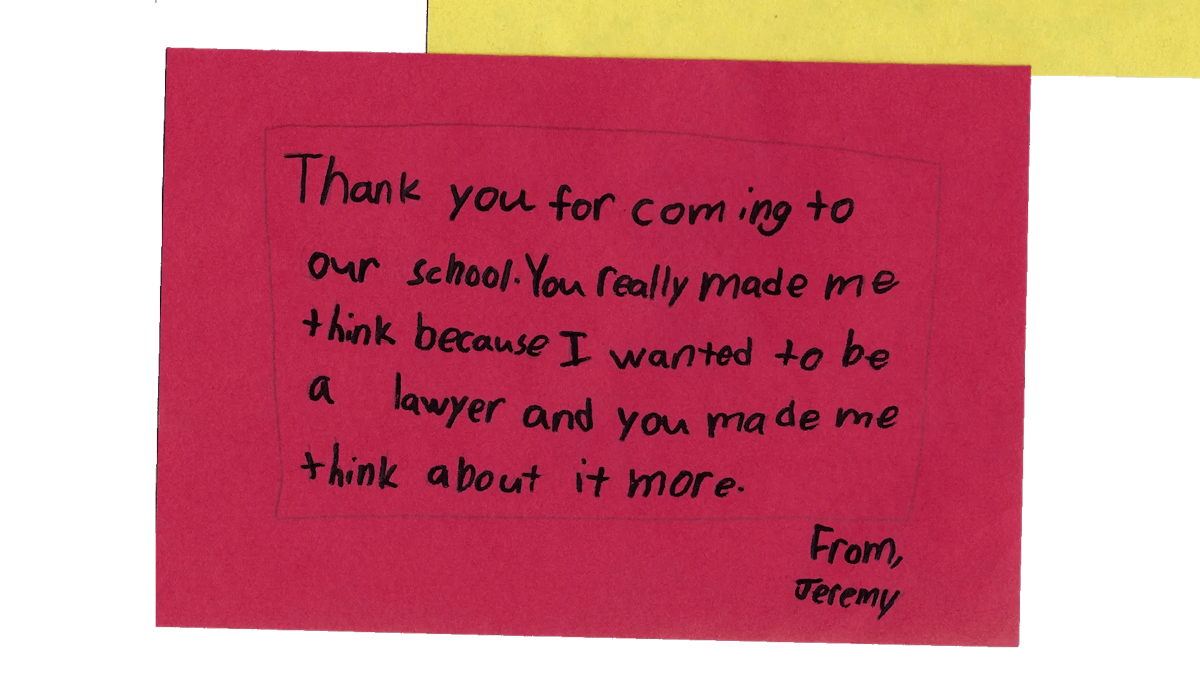 Thank you for coming to
our school. You really made me
think because I wanted to be
a lawyer and you made me
think about it more.
From,
Jeremy